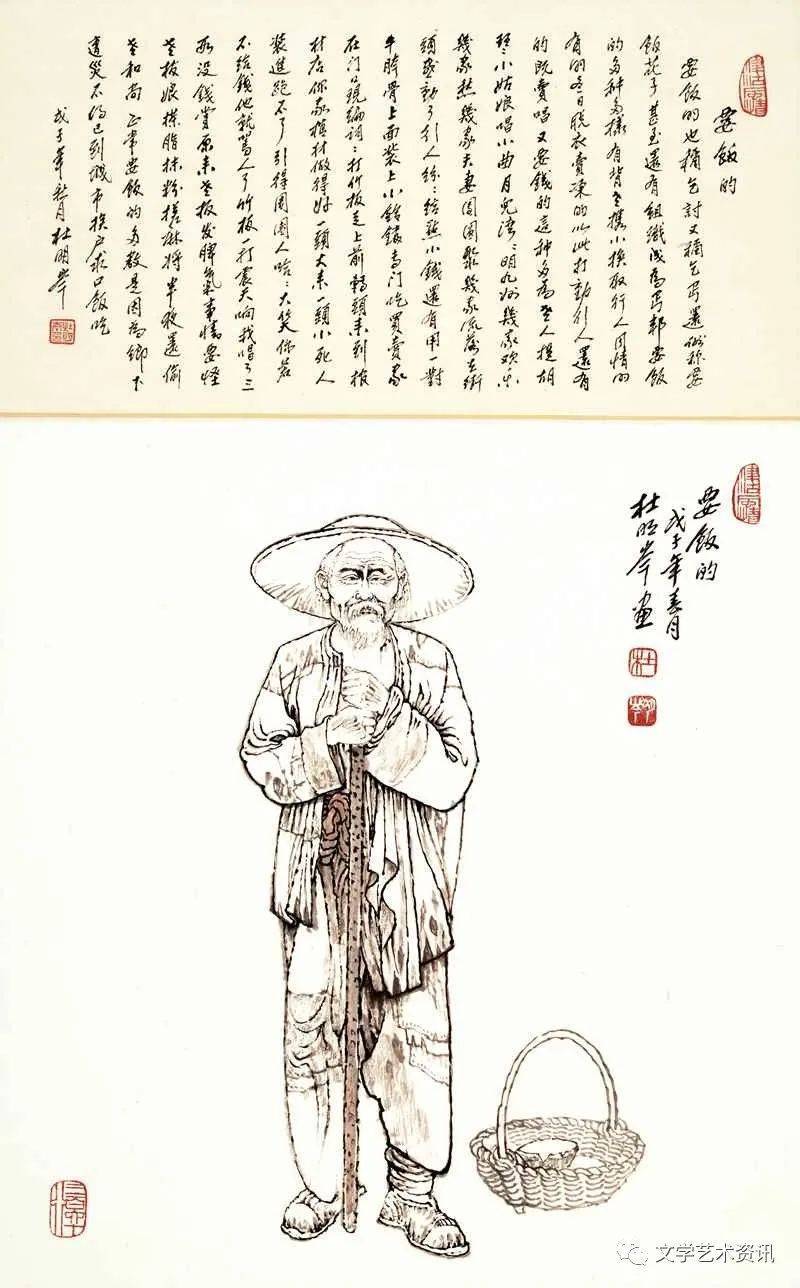 要飯的
要飯的也稱乞討又稱乞丐還俗称要
飯花子甚至還有組織成為丐邦要飯
的多种多樣有背老携小换取行人同情的
有的冬日脱衣賣凍的以此打動引人還有
的既賣唱又要錢的這种多為老人提胡
琴小姑娘唱小曲月兒湾〻明九洲幾家欢乐
幾家愁幾家夫妻团圆聚幾家流落在街
頭感動了引人紛〻給點小錢還有用一對
牛胯骨上面装上小铃鐺专门吃買賣家
在门口現編詞：打竹板走上前轉頭来到棺
材店你家棺材做得好一頭大来一頭小死人
装進跑不了引得围围人哈〻大笑你若
不给錢他就罵人了竹板一打震天响我唱了三
段没錢賞原来老板发脾氣事情要怪
老板娘搽脂抹粉搓麻将半夜還偷
老和尚正常要飯的多数是因為鄉下
遭災不得已到城市挨户求口飯吃
戊子年秋月杜明岑
要飯的
戊子年春月
杜明岑画
杜
文学艺术资讯